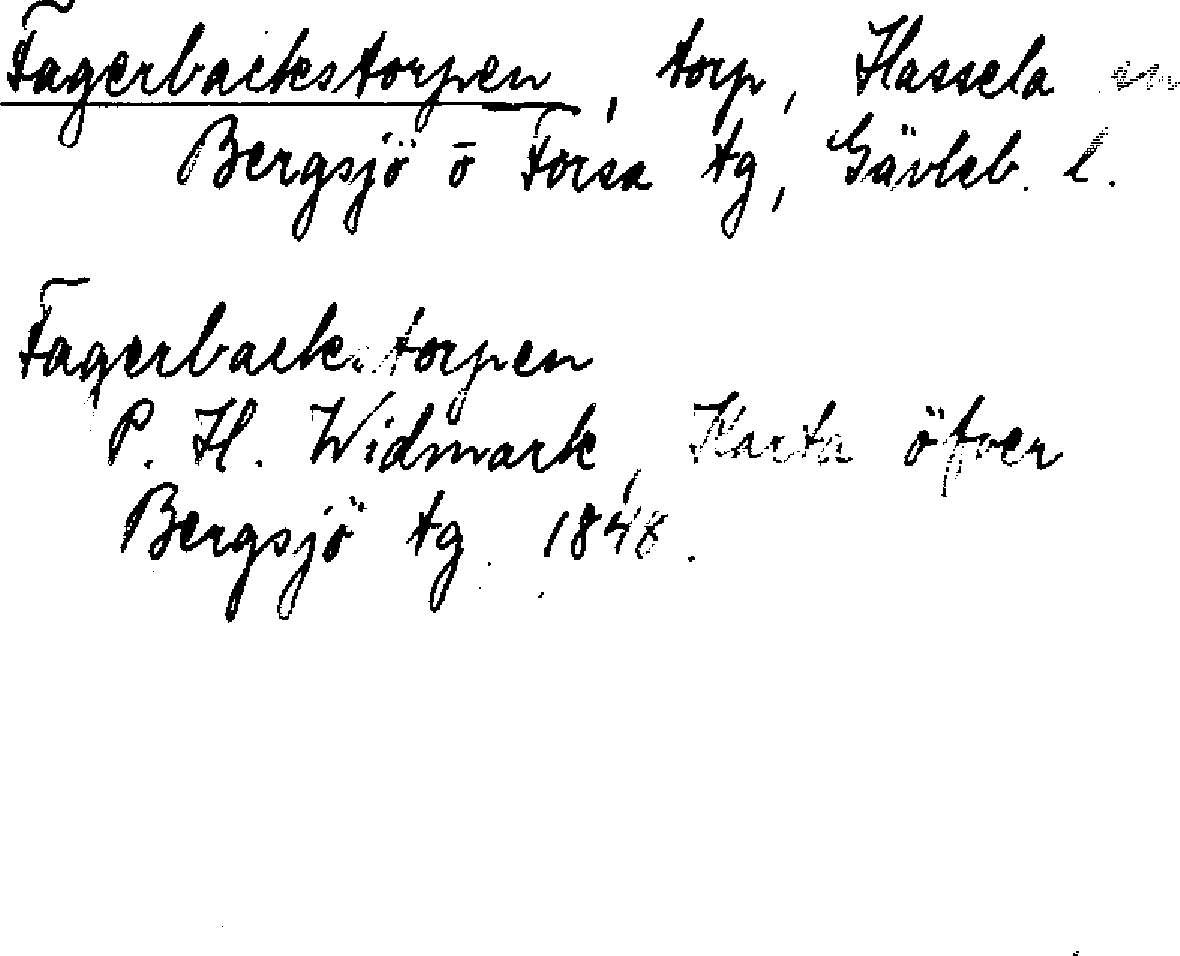 Fagerbackstorpen, torp, Hassela sn
Bergsjö o Forsa tg, Gävleb. l.
Fagerbackstorpen
P. H. Widmark, Karta öfver
Bergsjö tg. 1848.